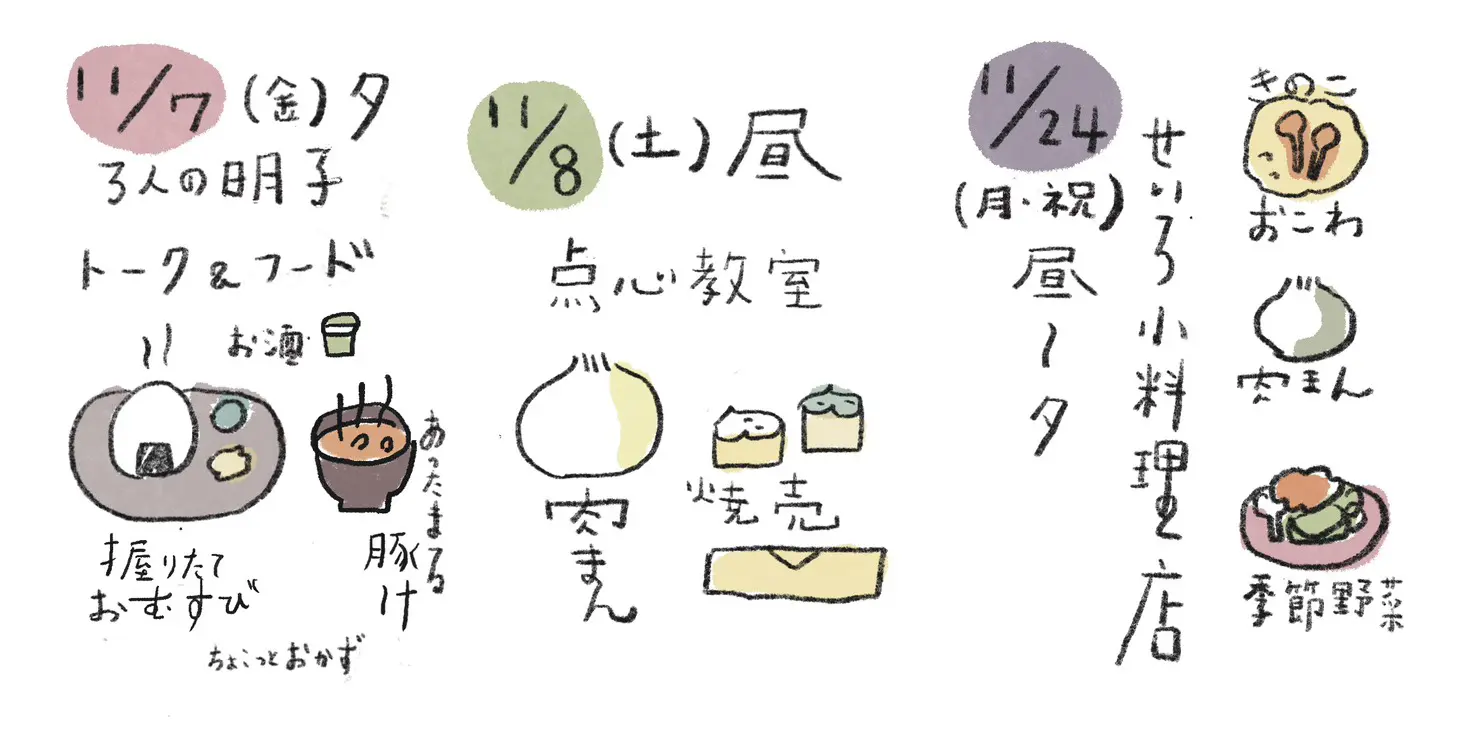 11/7(金)夕
3人の明子
トーク&フード
お酒
握りたて
おむすび
あったまる
豚汁
ちょこっとおかず
11/8(土)昼
点心教室
肉まん
焼売
11/24
(月・祝)
昼〜夕
せいろ小料理店
きのこ
おこわ
肉まん
季節野菜